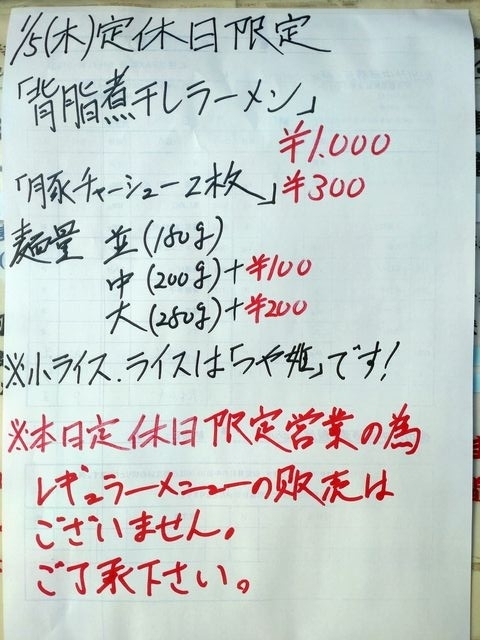 1/5(木)定休日限定
「背脂煮干しラーメン」
¥1.000
「豚チャーシュー2枚」¥300
麺量 並(150g)
中(200g)+¥100
大(250g)+¥200
※小ライス.ライスは「つや姫」です!
※本日定休日限定営業の為
レギュラーメニューの販売は
ございません。
ご了承下さい。